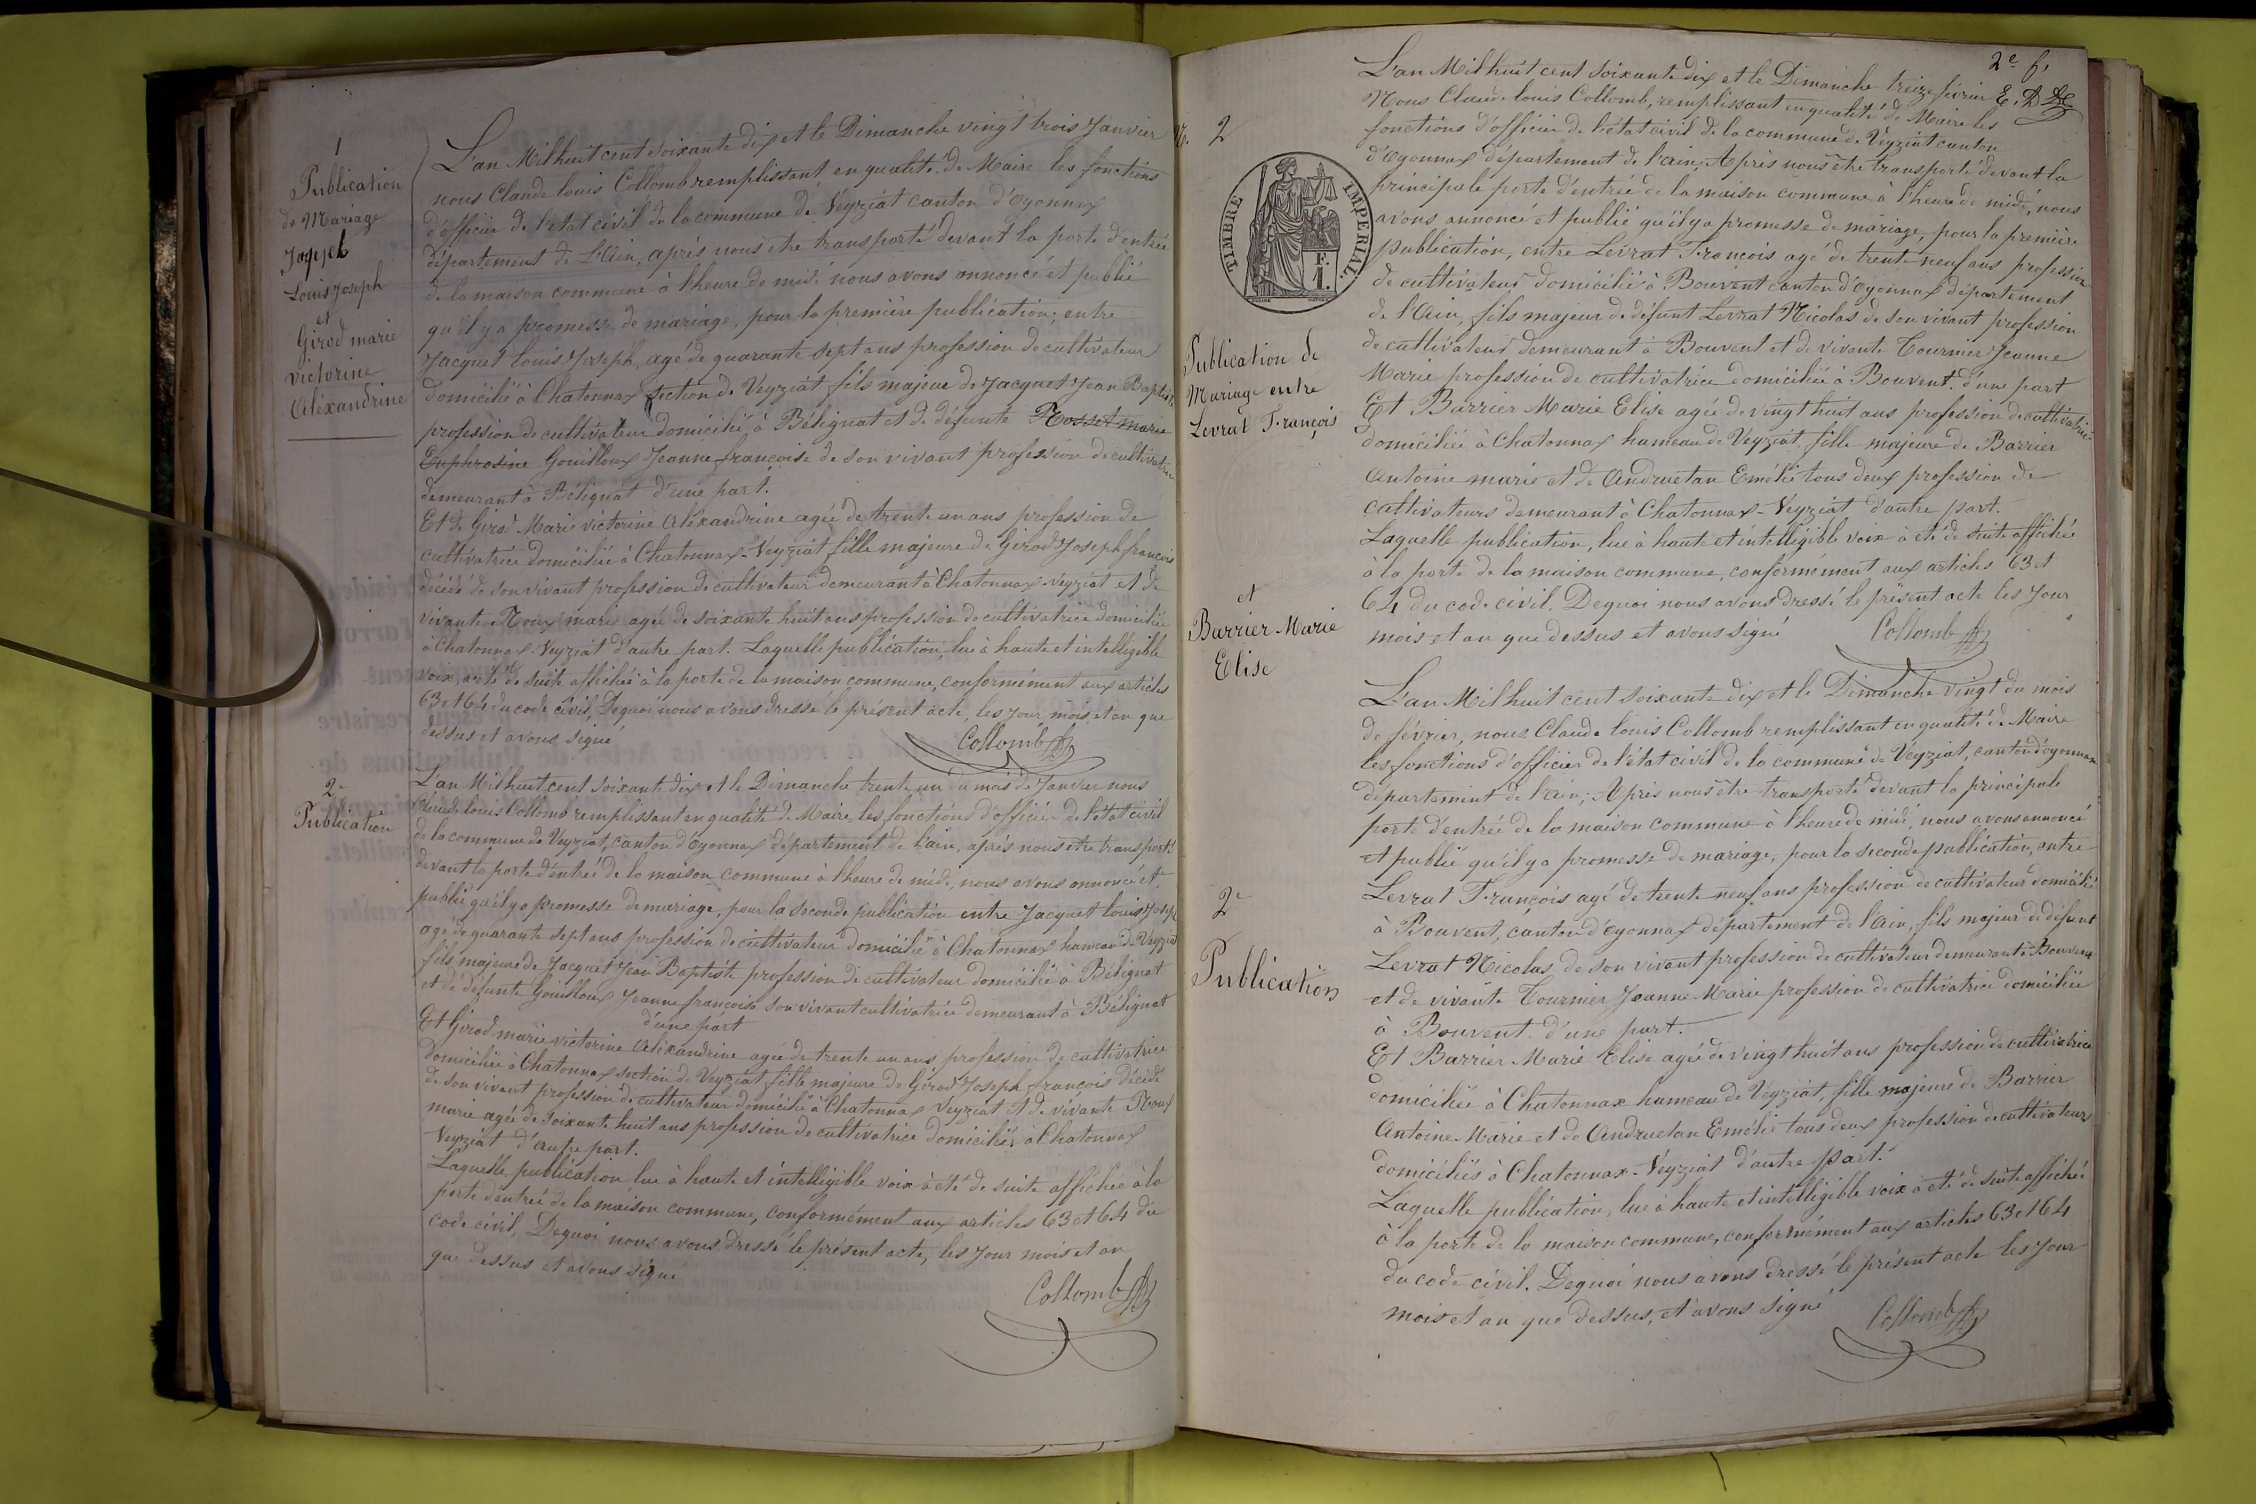 1
Publication
de Mariage
Jaquet
Louis Joseph
et
Girod marie
victorine
Aléxandrine
L'an Mil huit cent soixante dix et le Dimanche vingt trois Janvier
nous Claude louis Collomb remplissant en qualité de Maire les fonctions
d'officier de l'état civil de la commune de Veyziat canton d'Oyonnax
département de l'Ain, après nous être transporté devant la porte d'entrée
de la maison commune à l'heure de midi nous avons annoncé et publié
qu'il y a promesse de mariage, pour la première publication; entre
Jacquet louis Joseph, agé de quarante sept ans profession de cultivateur
domicilié à Chatonnax section de Veyziat fils majeur de Jacquet Jean Baptiste
profession de cultivateur domicilié à Bélignat et de défunte Rosset marie
Euphrosine Gouilloux Jeanne françoise de son vivant profession de cultivatrice
demeurant à Bélignat d'une part.
Et de Girod Marie victorine Aléxandrine agée de trente un ans profession de
cultivatrice domiciliée à Chatonnax-Veyziat fille majeure de Girod Joseph françois
décédé de son vivant profession de cultivateur demeurant à Chatonnax-Veyziat et de
vivante Roux marie agée de soixante huit ans profession de cultivatrice domiciliée
à Chatonnax-Veyziat d'autre part. Laquelle publication, lue à haute et intelligible
voix, a été de suite affichée à la porte de la maison commune, conformément aux articles
63 et 64 du code civil, Dequoi nous avons dressé le présent acte, les jour, mois et an que
dessus et avons signé
Collomb
2e
Publication
L'an Mil huit cent soixante dix et le Dimanche trente un du mois de Janvier nous
Claude louis Collomb remplissant en qualité de Maire les fonctions d'officier de l'état civil
de la commune de Veyziat, canton d'Oyonnax département de l'ain, après nous être transporté
devant la porte d'entrée de la maison commune à l'heure de midi, nous avons annoncé et
publié qu'il y a promesse de mariage, pour la seconde publication entre Jacquet louis Joseph
agé de quarante sept ans profession de cultivateur domicilié à Chatonnax hameau de Veyziat
fils majeur de Jacquet Jean Baptiste profession de cultivateur domicilié à Bélignat
et de défunte Gouilloux Jeanne françoise son vivant cultivatrice demeurant à Bélignat
d'une part
Et Girod marie victorine Aléxandrine agée de trente un ans profession de cultivatrice
domiciliée à Chatonnax section de Veyziat fille majeure de Girod Joseph françois décédé
de son vivant profession de cultivateur domicilié à Chatonnax Veyziat et de vivante Roux
marie agée de soixante huit ans profession de cultivatrice domiciliée à Chatonnax
Veyziat d'autre part.
Laquelle publication lue à haute et intelligible voix à été de suite affichée à la
porte d'entrée de la maison commune, conformément aux articles 63 et 64 du
code civil, Dequoi nous avons dressé le présent acte, les jour mois et an
que dessus et avons signé
Collomb
2e f.
N. 2
TIMBRE IMPERIAL.
1 F.
Publication de
Mariage entre
Levrat François
et
Barrier Marie
Elise
L'an Mil huit cent soixante dix et le Dimanche treize février
Nous Claude louis Collomb, remplissant en qualité de Maire les
fonctions d'officier de l'état civil de la commune de Veyziat canton
d'Oyonnax département de l'ain, Après nous être transporté devant la
principale porte d'entrée de la maison commune à l'heure de midi, nous
avons annoncé et publié qu'il y a promesse de mariage, pour la première
publication, entre Levrat François agé de trente neuf ans profession
de cultivateur domicilié à Bouvent canton d'Oyonnax département
de l'Ain, fils majeur de défunt Levrat Nicolas de son vivant profession
de cultivateur demeurant à Bouvent et de vivante Tournier Jeanne
Marie profession de cultivatrice domiciliée à Bouvent. d'une part
Et Barrier Marie Elise agée de vingt huit ans profession de cultivatrice
domiciliée à Chatonnax hameau de Veyziat, fille majeure de Barrier
Antoine marie et de Andruetan Emélie tous deux profession de
cultivateurs demeurant à Chatonnax-Veyziat d'autre part.
Laquelle publication, lue à haute et intelligible voix à été de suite affichée
à la porte de la maison commune, conformément aux articles 63 et
64 du code civil. Dequoi nous avons dressé le présent acte les jour
mois et an que dessus et avons signé
Collomb
2e
Publication
L'an Mil huit cent soixante dix et le Dimanche vingt du mois
de février, nous Claude louis Collomb remplissant en qualité de Maire
les fonctions d'officier de l'état civil de la commune de Veyziat, canton d'oyonnax
département de l'ain; Après nous être transporté devant la principale
porte d'entrée de la maison commune à l'heure de midi, nous avons annoncé
et publié qu'il y a promesse de mariage, pour la seconde publication, entre
Levrat François agé de trente neuf ans profession de cultivateur domicilié
à Bouvent, canton d'Oyonnax département de l'Ain, fils majeur de défunt
Levrat Nicolas de son vivant profession de cultivateur demeurant à Bouvent
et de vivante Tournier Jeanne Marie profession de cultivatrice domiciliée
à Bouvent d'une part.
Et Barrier Marie Elise agée de vingt huit ans profession de cultivatrice
domiciliée à Chatonnax hameau de Veyziat, fille majeure de Barrier
Antoine Marie et de Andruetan Emélie tous deux profession de cultivateurs
domiciliés à Chatonnax-Veyziat d'autre part.
Laquelle publication, lue à haute et intelligible voix à été de suite affichée
à la porte de la maison commune, conformément aux articles 63 et 64
du code civil. Dequoi nous avons dressé le présent acte les jour
mois et an que dessus, et avons signé
Collomb